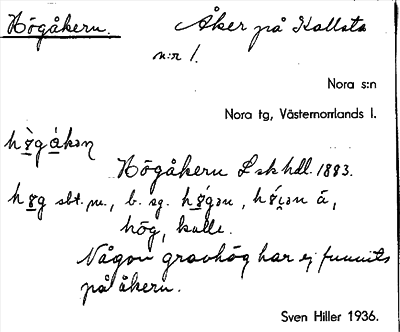 Högåkern. Åker på Kallsta
n:r 1.
Nora s:n
Nora tg, Västernorrlands l.
hø̀gákən
Högåkern Lskhdl. 1883.
høg sbt. m., b. sg. hǿgən, ā,
hög, kulle.
Någon gravhög har ej funnits
på åkern.
Sven Hiller 1936.